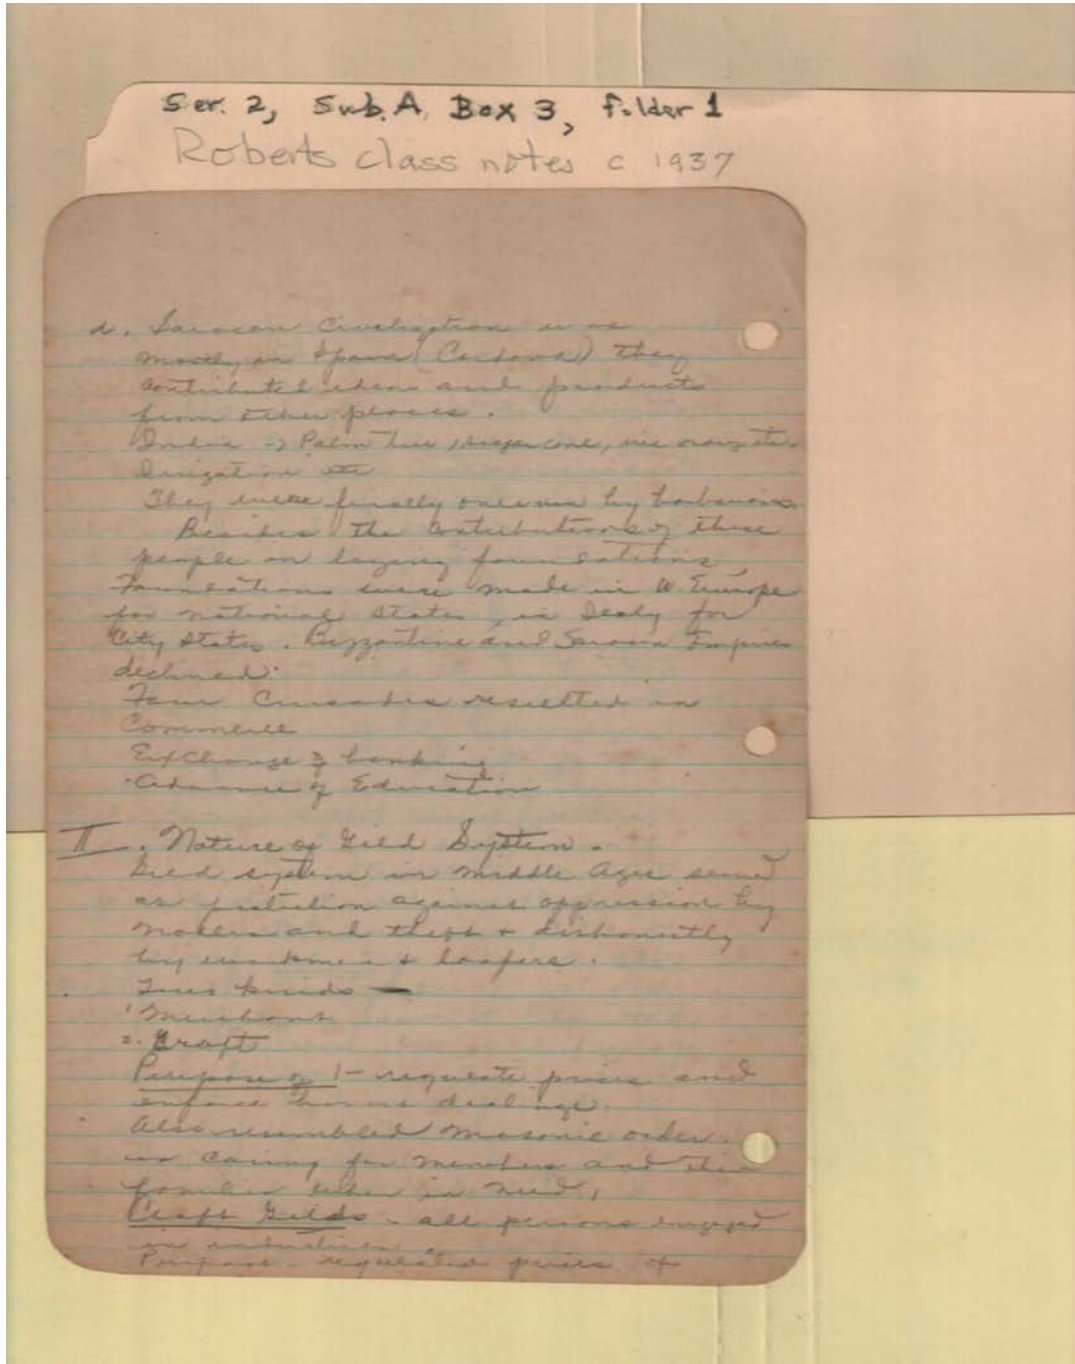 Ser. 2, Sub. A, Box 3, Folder 1
Roberts class notes c 1937
d. Saracen Civilization was
mostly in Spain (Cordova) they
contributed ideas and products
from other places.
India of Palm tree, sugar cone, rice orang etc.
Irrigation etc
They were finally overrun by barbarians.
Besides the contributions of these
people on laying foundations,
Foundations were made in W Europe
for national states, in Italy for
City States. Byzzantine and Saracen Empires
declined.
Four Crusades resulted in
Commerce
Exchange & banking
Advance of Education
II. Nature of Gild System.
Gild system in Middle Ages served
as protection against oppression by
nobles and theft + dishonestly
by workmen + loafers.
Two kinds —
1 Merchant
2. Craft
Purpose of 1 - regulate prices and
enforce honest dealings.
Also resembled Masonic order.
in caring for members and their
families when in need,
Craft Gilds - all persons engaged
in industries.
Purpose - regulated prices +